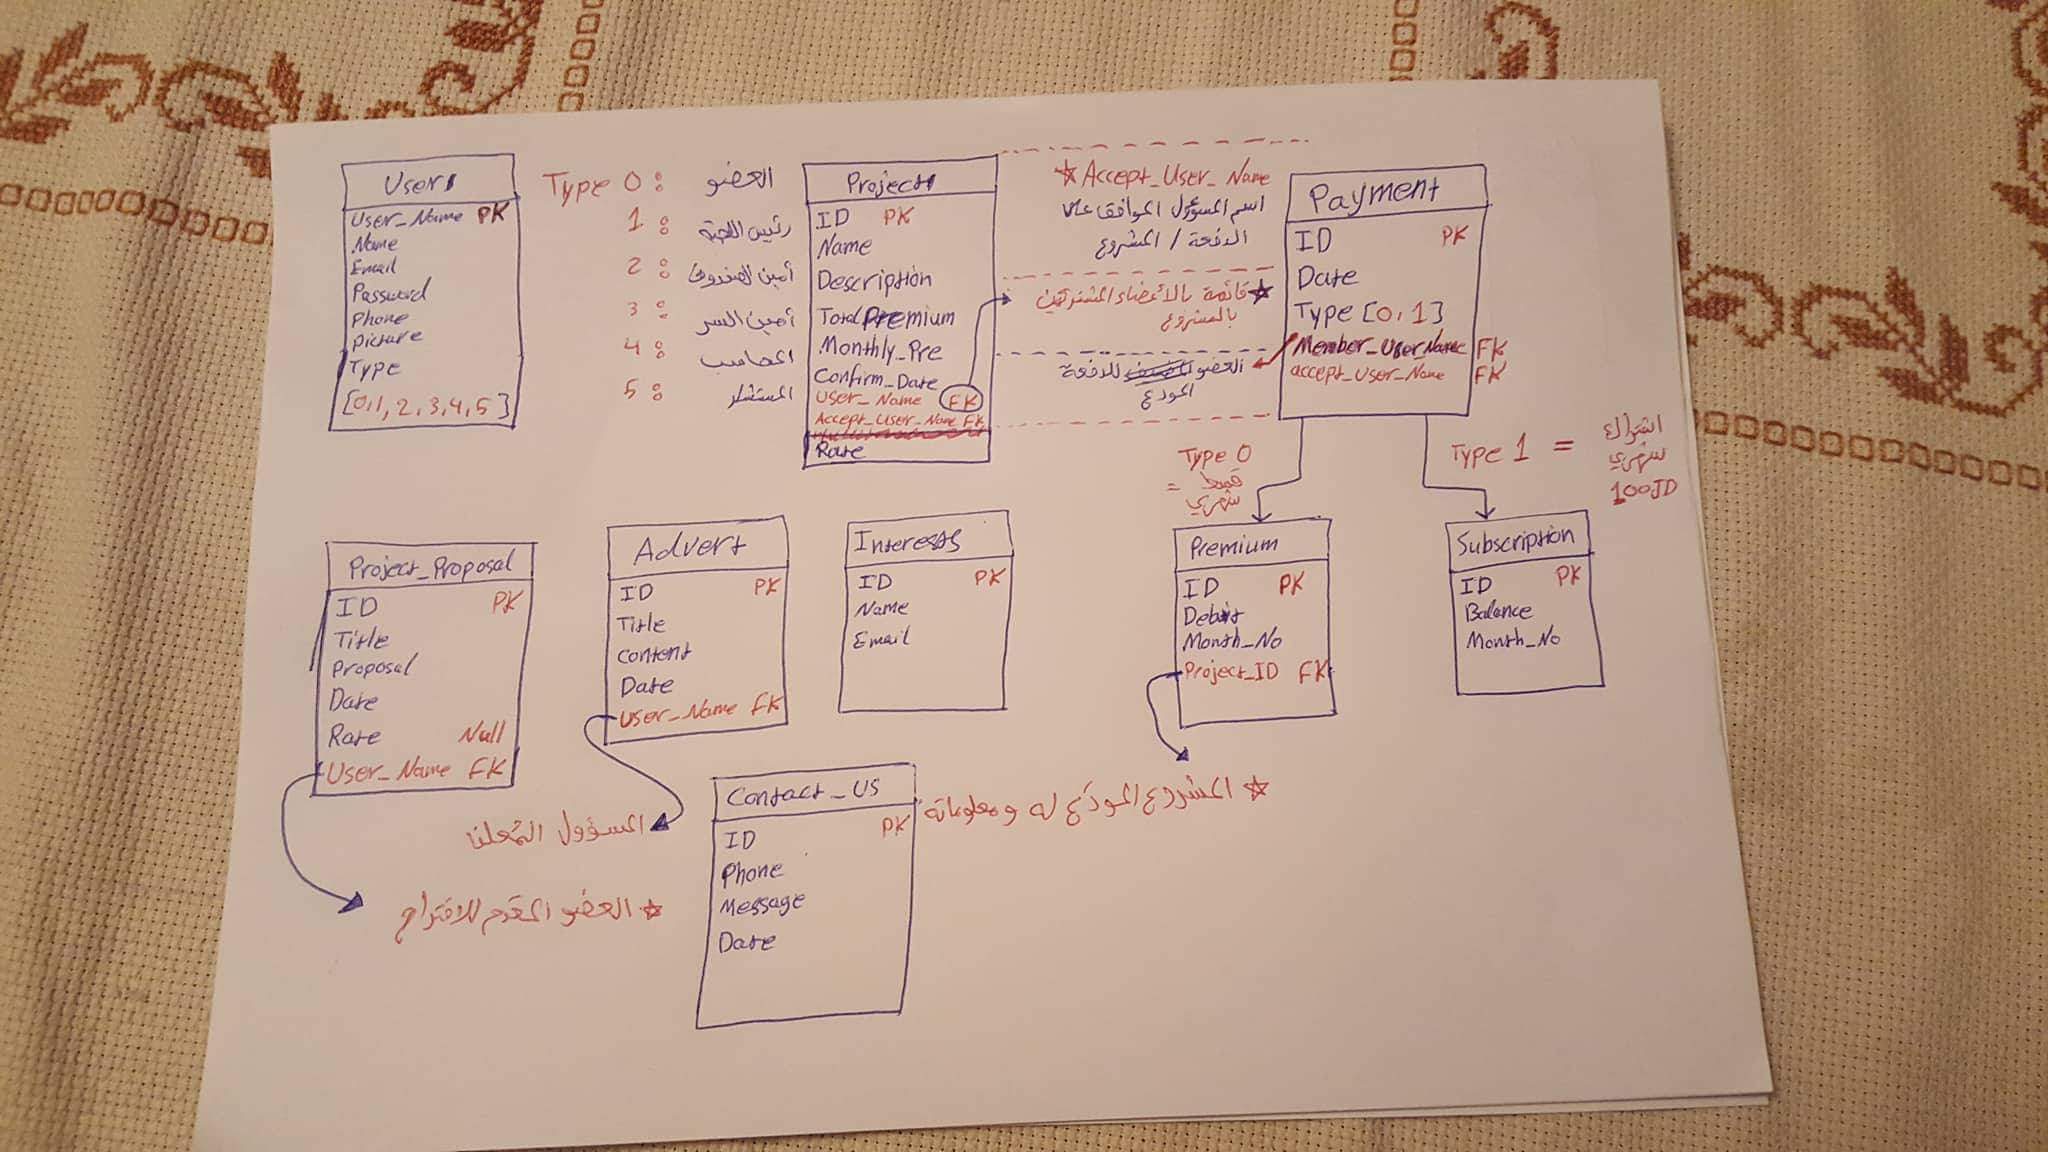 User
User_Name PK
Name
Email
Password
Phone
picture
Type
[0,1,2,3,4,5]
Type 0 : العضو
1 : رئيس اللجنة
2 : أمين الصندوق
3 : أمين السر
4 : المحاسب
5 : المستشار
Project
ID PK
Name
Description
Total Premium
Monthly_Pre
Confirm_Date
User_Name FK
Accept_User_Name FK
Rate
☆ Accept_User_Name
اسم المسؤول الموافق على
الدفعة / المشروع
☆ قائمة بالأعضاء المشتركين
بالمشروع
العضو للدفعة
المودع
Payment
ID PK
Date
Type [0,1]
Member_User_Name FK
accept_User_Name FK
Type 0
= قسط
شهري
Type 1 = اشتراك
شهري
100JD
Project_Proposal
ID PK
Title
Proposal
Date
Rate Null
User_Name FK
☆ العضو المقدم للاقتراح
Advert
ID PK
Title
Content
Date
User_Name FK
المسؤول المعلن
Interests
ID PK
Name
Email
Premium
ID PK
Debit
Month_No
Project_ID FK
☆ المشروع المودع له ومعلوماته
Subscription
ID PK
Balance
Month_No
Contact_US
ID PK
Phone
Message
Date